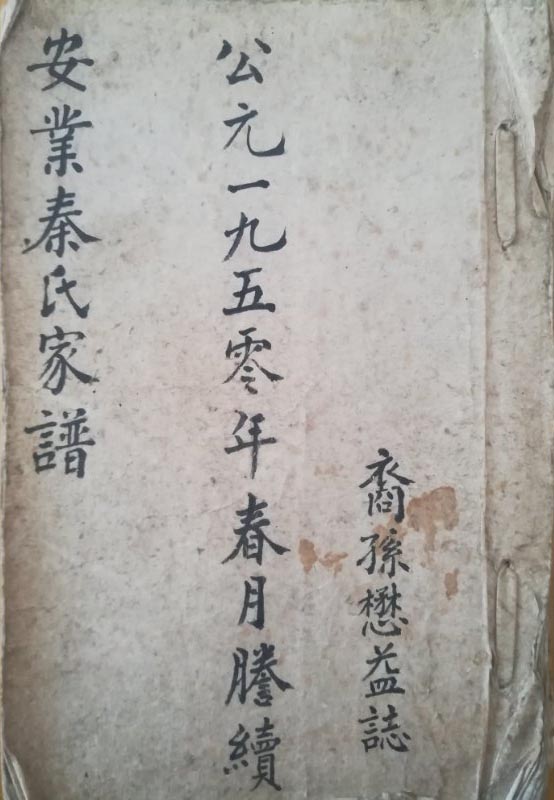 裔孫懋益誌
公元一九五零年春月謄續
安業秦氏家譜